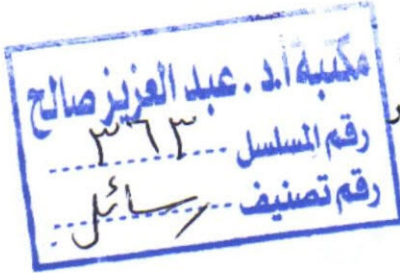 مكتبة أ.د. عبد العزيز صالح
رقم المسلسل ٣٦٣
رقم تصنيف رسائل